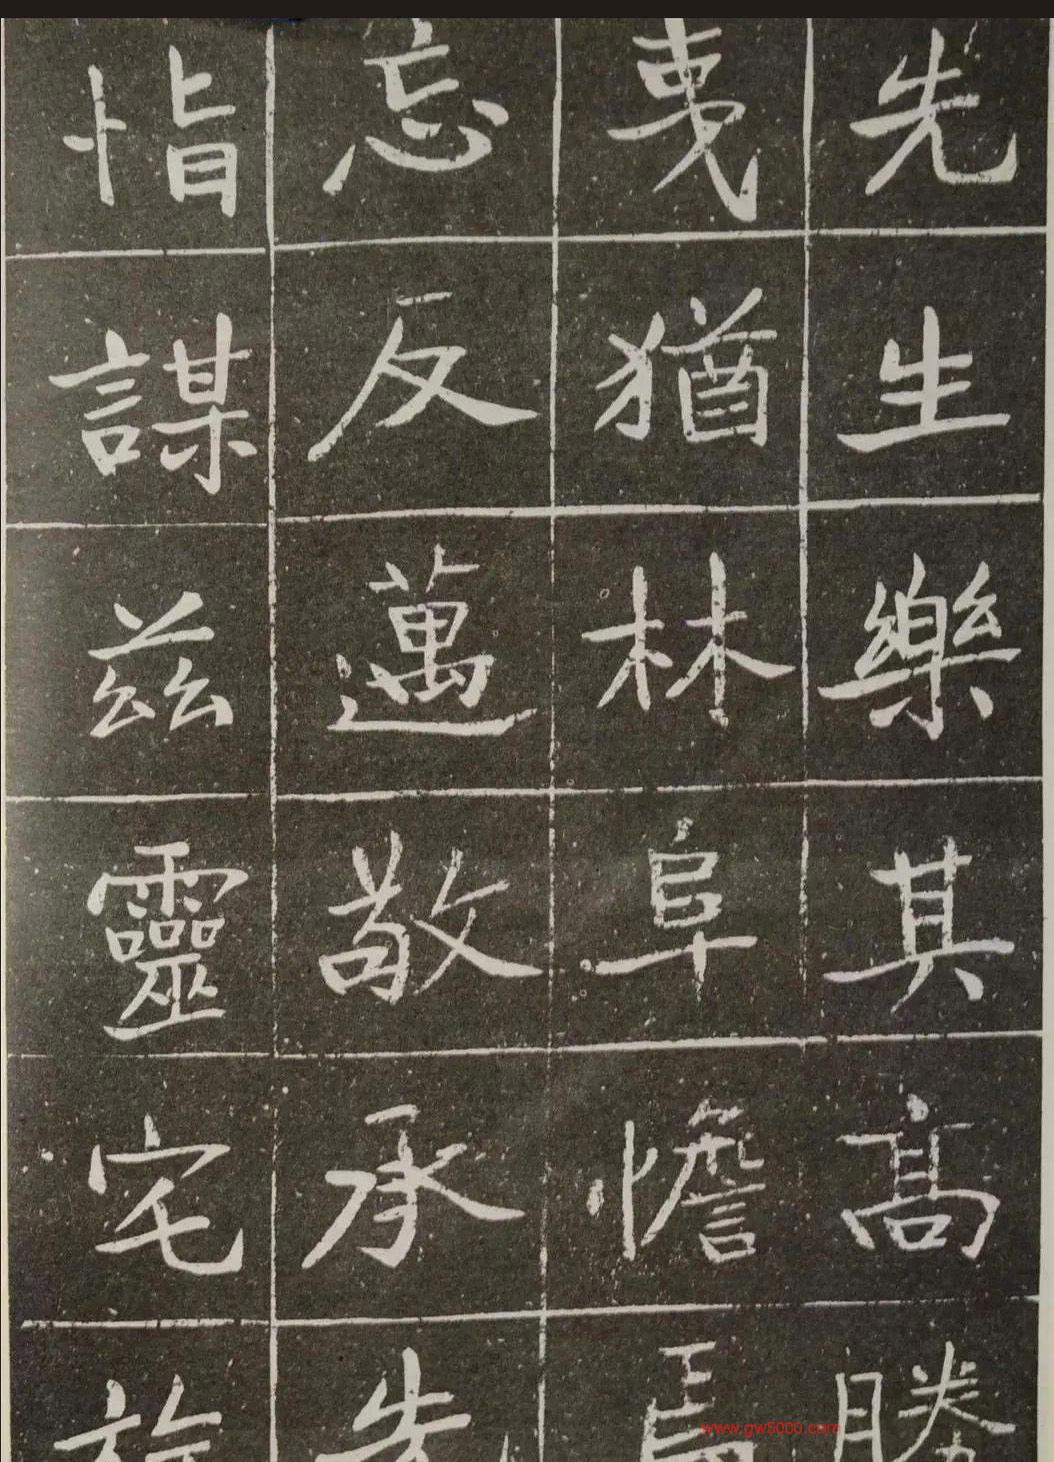 先生樂其高勝
夷猶林阜憺
忘反邁敬承先
恉謀茲靈宅旋
www.gw5000.com